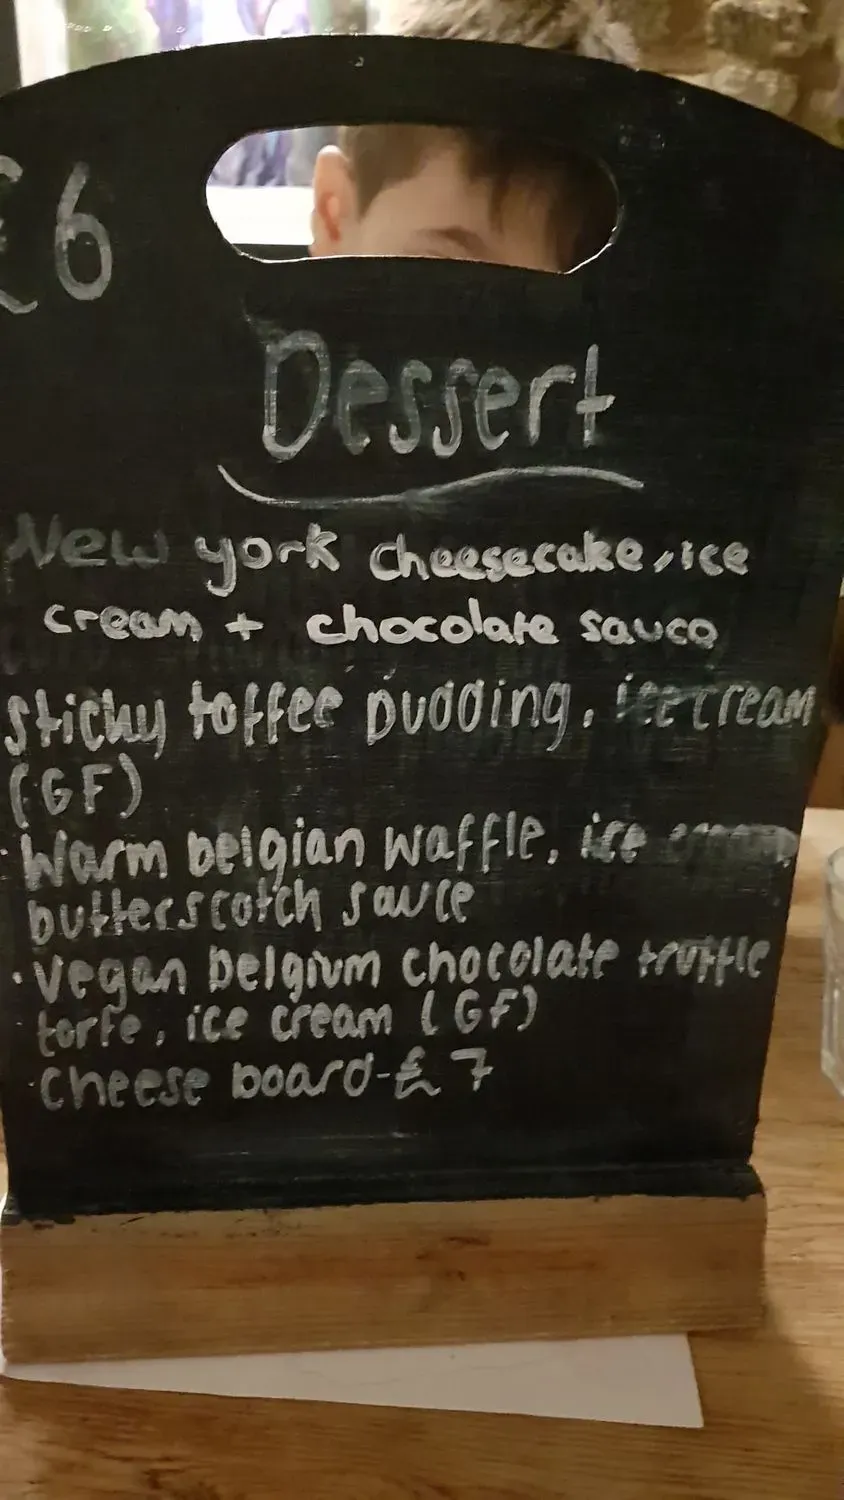 £6
Dessert
New york cheesecake, ice
cream + chocolate sauce
sticky toffee pudding, ice cream
(GF)
· Warm belgian waffle, ice cream
butterscotch sauce
· Vegan belgium chocolate truffle
torte, ice cream (GF)
· Cheese board - £7